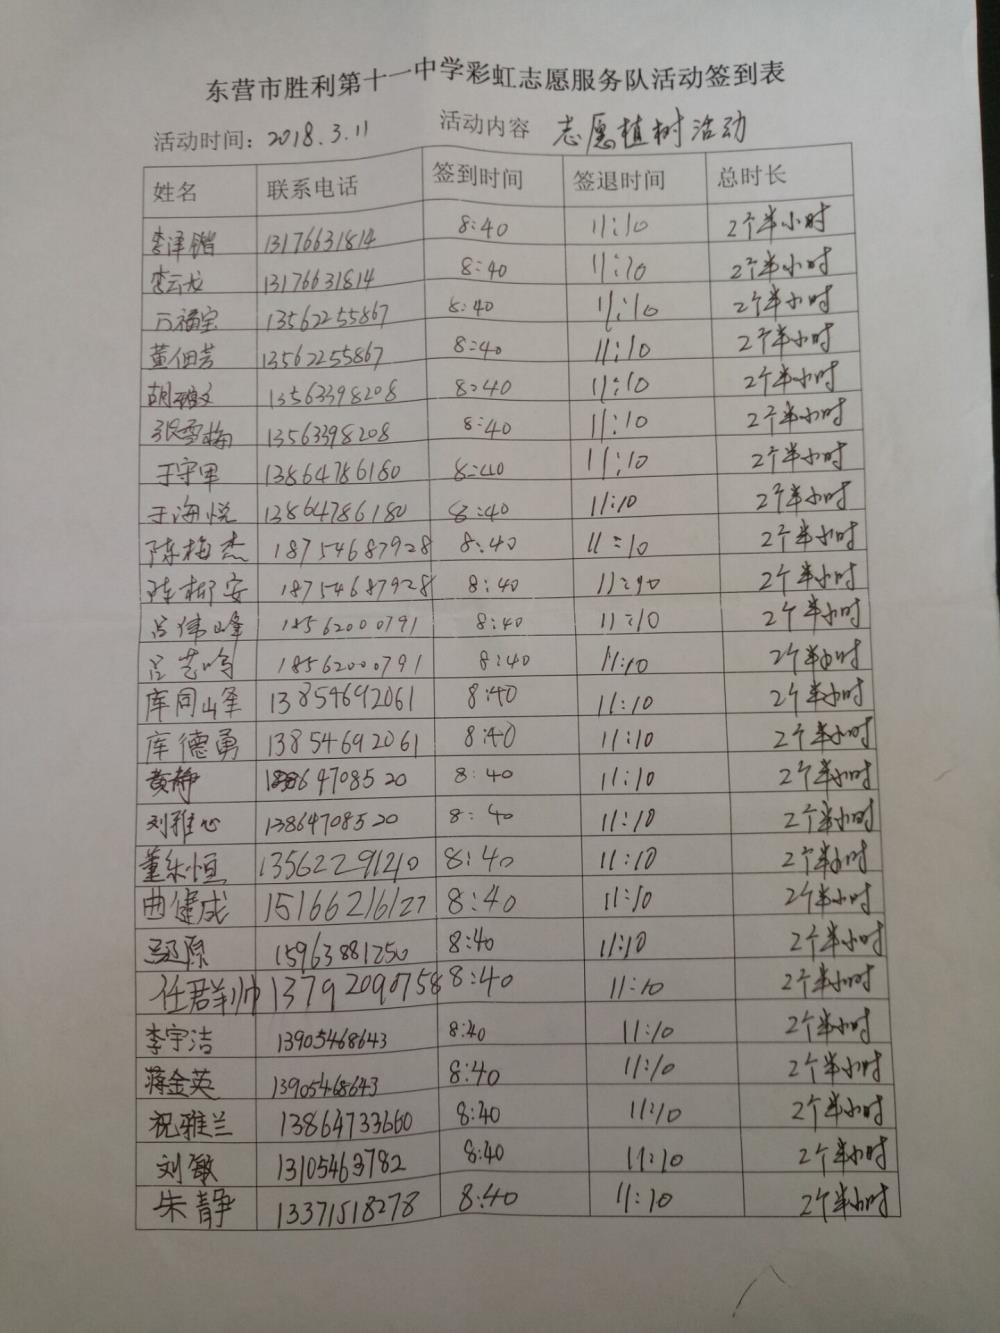 东营市胜利第十一中学彩虹志愿服务队活动签到表
活动时间：2018.3.11 活动内容 志愿植树活动
姓名 联系电话 签到时间 签退时间 总时长
李泽锴 13176631814 8:40 11:10 2个半小时
李云龙 13176631814 8:40 11:10 2个半小时
万福宝 13562255867 8:40 11:10 2个半小时
董佃芳 13562255867 8:40 11:10 2个半小时
胡雅文 13563398208 8:40 11:10 2个半小时
张雪梅 13563398208 8:40 11:10 2个半小时
于守军 13864786180 8:40 11:10 2个半小时
于海悦 13864786180 8:40 11:10 2个半小时
陈梅杰 18754687928 8:40 11:10 2个半小时
陈柳安 18754687928 8:40 11:10 2个半小时
吕伟峰 18562000791 8:40 11:10 2个半小时
吕艺鸣 18562000791 8:40 11:10 2个半小时
库同峰 13854692061 8:40 11:10 2个半小时
库德勇 13854692061 8:40 11:10 2个半小时
黄静 13864708520 8:40 11:10 2个半小时
刘雅心 13864708520 8:40 11:10 2个半小时
董乐恒 13562291210 8:40 11:10 2个半小时
曲健成 15166216127 8:40 11:10 2个半小时
15963881250 8:40 11:10 2个半小时
任君帅 13792090758 8:40 11:10 2个半小时
李宇洁 13905468643 8:40 11:10 2个半小时
蒋金英 13905468643 8:40 11:10 2个半小时
祝雅兰 13864733660 8:40 11:10 2个半小时
刘敏 13105463782 8:40 11:10 2个半小时
朱静 13371518278 8:40 11:10 2个半小时